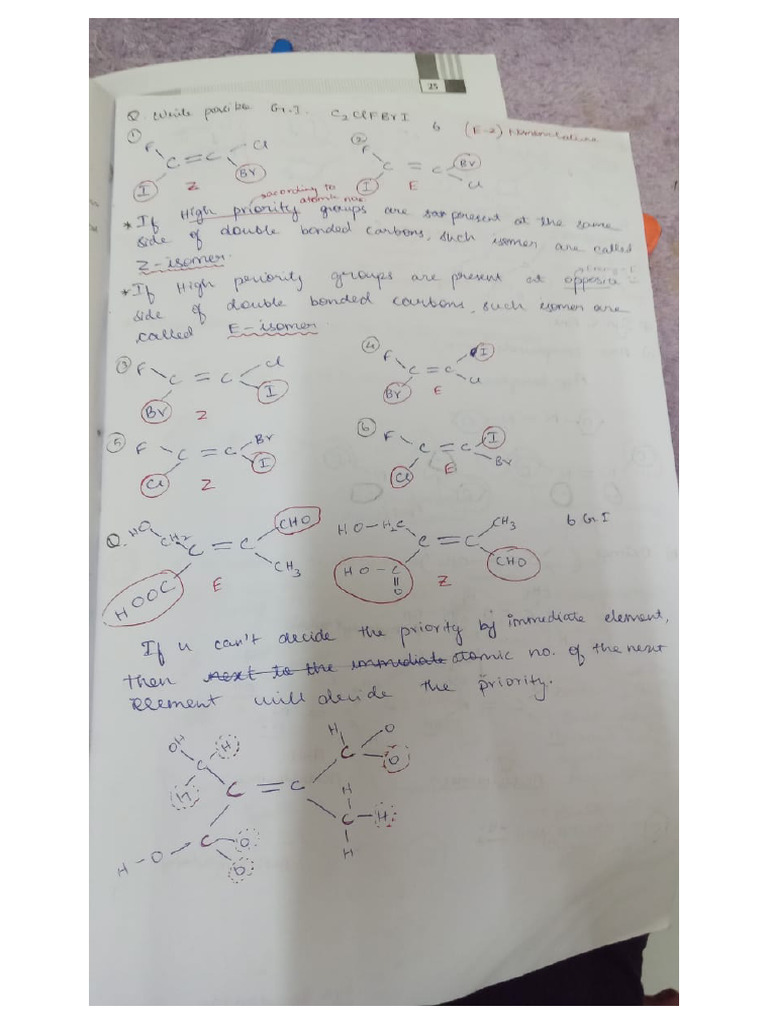 25
Q. Write possible G.I. C₂ClFBrI 6 (E-Z) Nomenclature
① F Cl ② F Br
C = C C = C
I Z Br I E Cl
according to
atomic nos.
* If High priority groups are present at the same
side of double bonded carbons, such isomer are called
Z-isomer.
* If High periority groups are present at opposite
side of double bonded carbons, such isomer are
called E-isomer.
③ F Cl ④ F I
C = C C = C
Br Z I Br E Cl
⑤ F Br ⑥ F I
C = C C = C
Cl Z I Cl E Br
Q. HO CH₂ CHO HO-H₂C CH₃ 6 G.I
C = C C = C
HOOC E CH₃ HO-C Z CHO
O
If u can't decide the priority by immediate element,
then next to the immediate atomic no. of the next
element will decide the priority.
OH H H O
C C O
H C = C H
C O C H
H-O O H